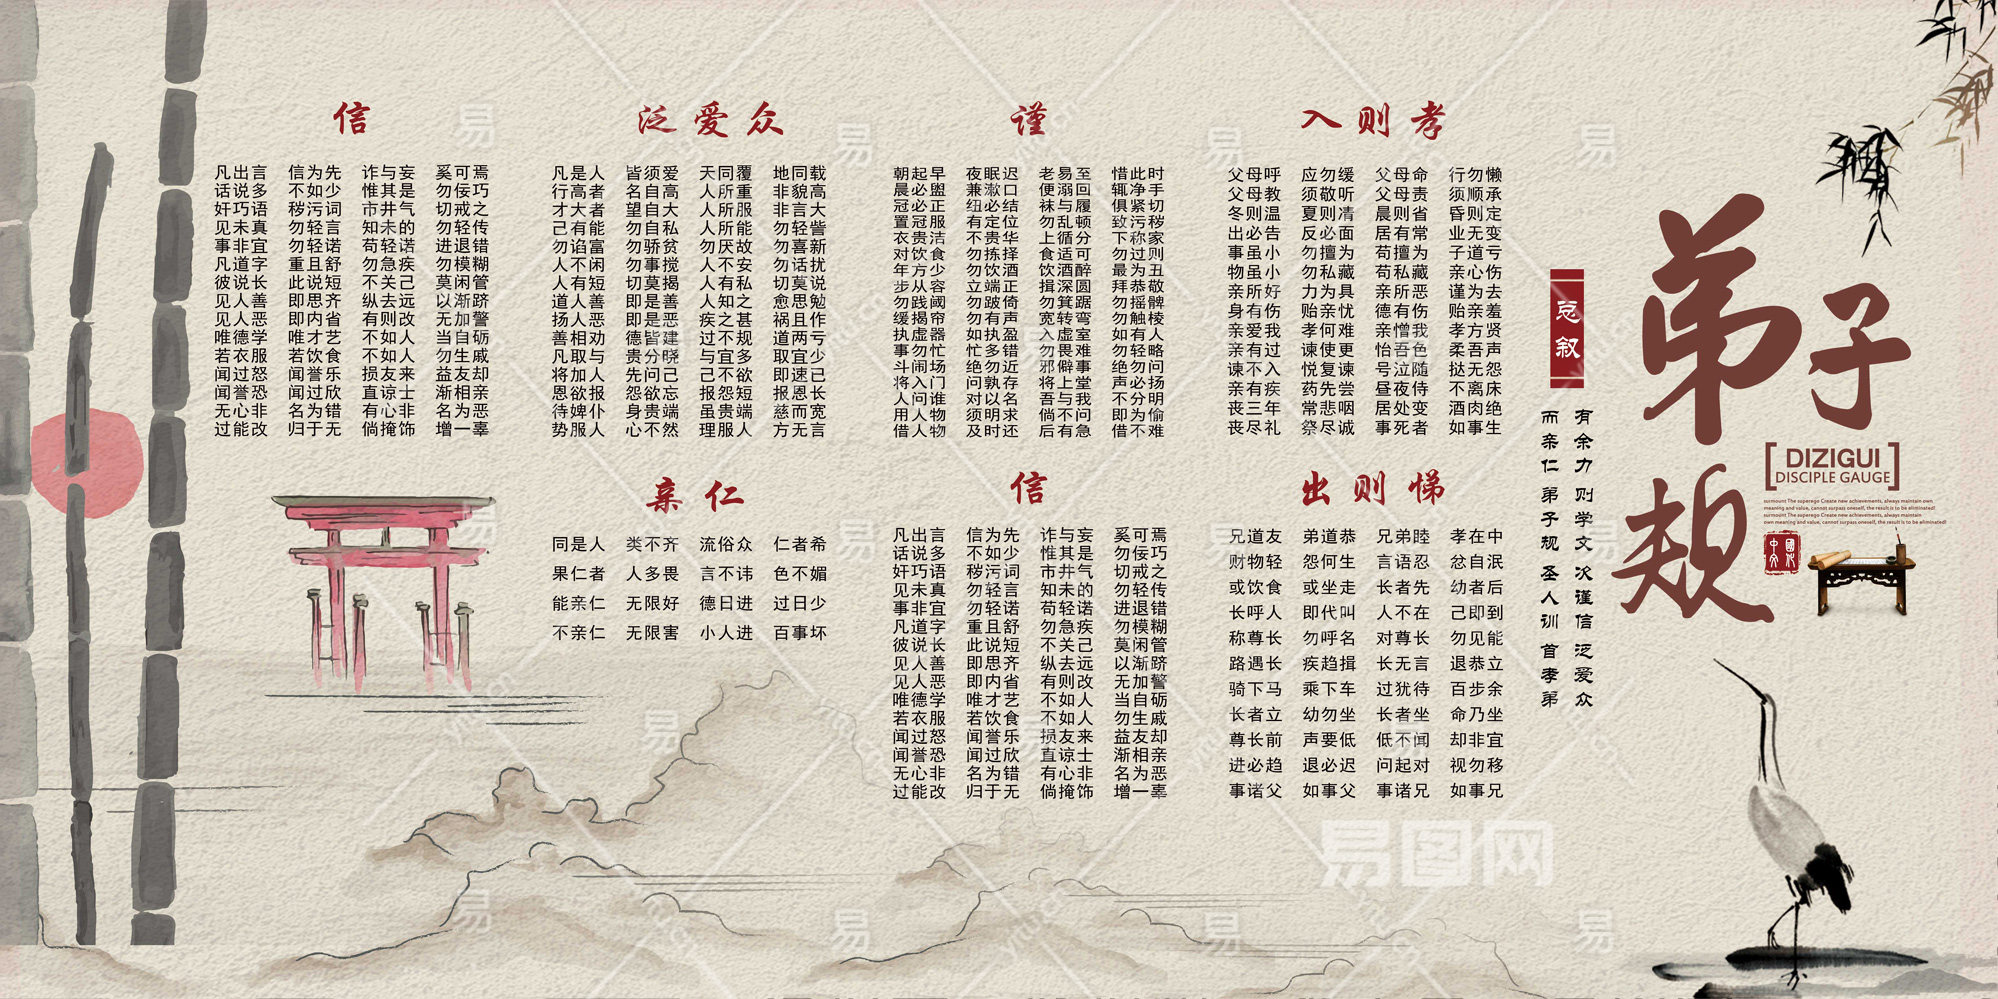 弟子规
DIZIGUI
DISCIPLE GAUGE
surmount The superego Create new achievements, always maintain own
meaning and value, cannot surpass oneself, the result is to be eliminated!
surmount The superego Create new achievements, always maintain
own meaning and value, cannot surpass oneself, the result is to be eliminated!
总叙
有余力 则学文 次谨信 泛爱众
而亲仁 弟子规 圣人训 首孝弟
入则孝
父母呼 应勿缓 父母命 行勿懒
父母教 须敬听 父母责 须顺承
冬则温 夏则凊 晨则省 昏则定
出必告 反必面 居有常 业无变
事虽小 勿擅为 苟擅为 子道亏
物虽小 勿私藏 苟私藏 亲心伤
亲所好 力为具 亲所恶 谨为去
身有伤 贻亲忧 德有伤 贻亲羞
亲爱我 孝何难 亲憎我 孝方贤
亲有过 谏使更 怡吾色 柔吾声
谏不入 悦复谏 号泣随 挞无怨
亲有疾 药先尝 昼夜侍 不离床
丧三年 常悲咽 居处变 酒肉绝
丧尽礼 祭尽诚 事死者 如事生
出则悌
兄道友 弟道恭 兄弟睦 孝在中
财物轻 怨何生 言语忍 忿自泯
或饮食 或坐走 长者先 幼者后
长呼人 即代叫 人不在 己即到
称尊长 勿呼名 对尊长 勿见能
路遇长 疾趋揖 长无言 退恭立
骑下马 乘下车 过犹待 百步余
长者立 幼勿坐 长者坐 命乃坐
尊长前 声要低 低不闻 却非宜
进必趋 退必迟 问起对 视勿移
事诸父 如事父 事诸兄 如事兄
谨
朝起早 夜眠迟 老易至 惜此时
晨必盥 兼漱口 便溺回 辄净手
冠必正 纽必结 袜与履 俱紧切
置冠服 有定位 勿乱顿 致污秽
衣贵洁 不贵华 上循分 下称家
对饮食 勿拣择 食适可 勿过则
年方少 勿饮酒 饮酒醉 最为丑
步从容 立端正 揖深圆 拜恭敬
勿践阈 勿跛倚 勿箕踞 勿摇髀
缓揭帘 勿有声 宽转弯 勿触棱
执虚器 如执盈 入虚室 如有人
事勿忙 忙多错 勿畏难 勿轻略
斗闹场 绝勿近 邪僻事 绝勿问
将入门 问孰存 将上堂 声必扬
人问谁 对以名 吾与我 不分明
用人物 须明求 倘不问 即为偷
借人物 及时还 后有急 借不难
信
凡出言 信为先 诈与妄 奚可焉
话说多 不如少 惟其是 勿佞巧
奸巧语 秽污词 市井气 切戒之
见未真 勿轻言 知未的 勿轻传
事非宜 勿轻诺 苟轻诺 进退错
凡道字 重且舒 勿急疾 勿模糊
彼说长 此说短 不关己 莫闲管
见人善 即思齐 纵去远 以渐跻
见人恶 即内省 有则改 无加警
唯德学 唯才艺 不如人 当自砺
若衣服 若饮食 不如人 勿生戚
闻过怒 闻誉乐 损友来 益友却
闻誉恐 闻过欣 直谅士 渐相亲
无心非 名为错 有心非 名为恶
过能改 归于无 倘掩饰 增一辜
泛爱众
凡是人 皆须爱 天同覆 地同载
行高者 名自高 人所重 非貌高
才大者 望自大 人所服 非言大
己有能 勿自私 人所能 勿轻訾
勿谄富 勿骄贫 勿厌故 勿喜新
人不闲 勿事搅 人不安 勿话扰
人有短 切莫揭 人有私 切莫说
道人善 即是善 人知之 愈思勉
扬人恶 即是恶 疾之甚 祸且作
善相劝 德皆建 过不规 道两亏
凡取与 贵分晓 与宜多 取宜少
将加人 先问己 己不欲 即速已
恩欲报 怨欲忘 报怨短 报恩长
待婢仆 身贵端 虽贵端 慈而宽
势服人 心不然 理服人 方无言
亲仁
同是人 类不齐 流俗众 仁者希
果仁者 人多畏 言不讳 色不媚
能亲仁 无限好 德日进 过日少
不亲仁 无限害 小人进 百事坏
信
凡出言 信为先 诈与妄 奚可焉
话说多 不如少 惟其是 勿佞巧
奸巧语 秽污词 市井气 切戒之
见未真 勿轻言 知未的 勿轻传
事非宜 勿轻诺 苟轻诺 进退错
凡道字 重且舒 勿急疾 勿模糊
彼说长 此说短 不关己 莫闲管
见人善 即思齐 纵去远 以渐跻
见人恶 即内省 有则改 无加警
唯德学 唯才艺 不如人 当自砺
若衣服 若饮食 不如人 勿生戚
闻过怒 闻誉乐 损友来 益友却
闻誉恐 闻过欣 直谅士 渐相亲
无心非 名为错 有心非 名为恶
过能改 归于无 倘掩饰 增一辜
易图网